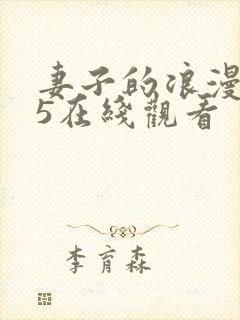 妻子的浪漫
5在綫觀看
李育森